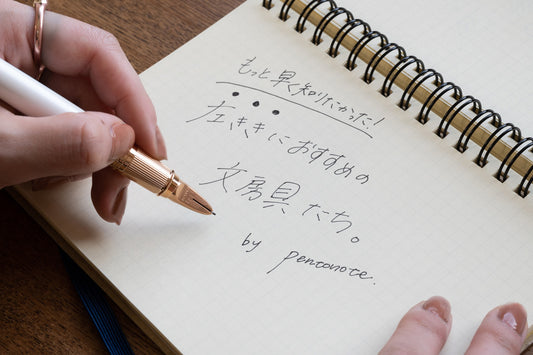 もっと早く知りたかった!
左ききにおすすめの
文房具たち。
by pentonote.